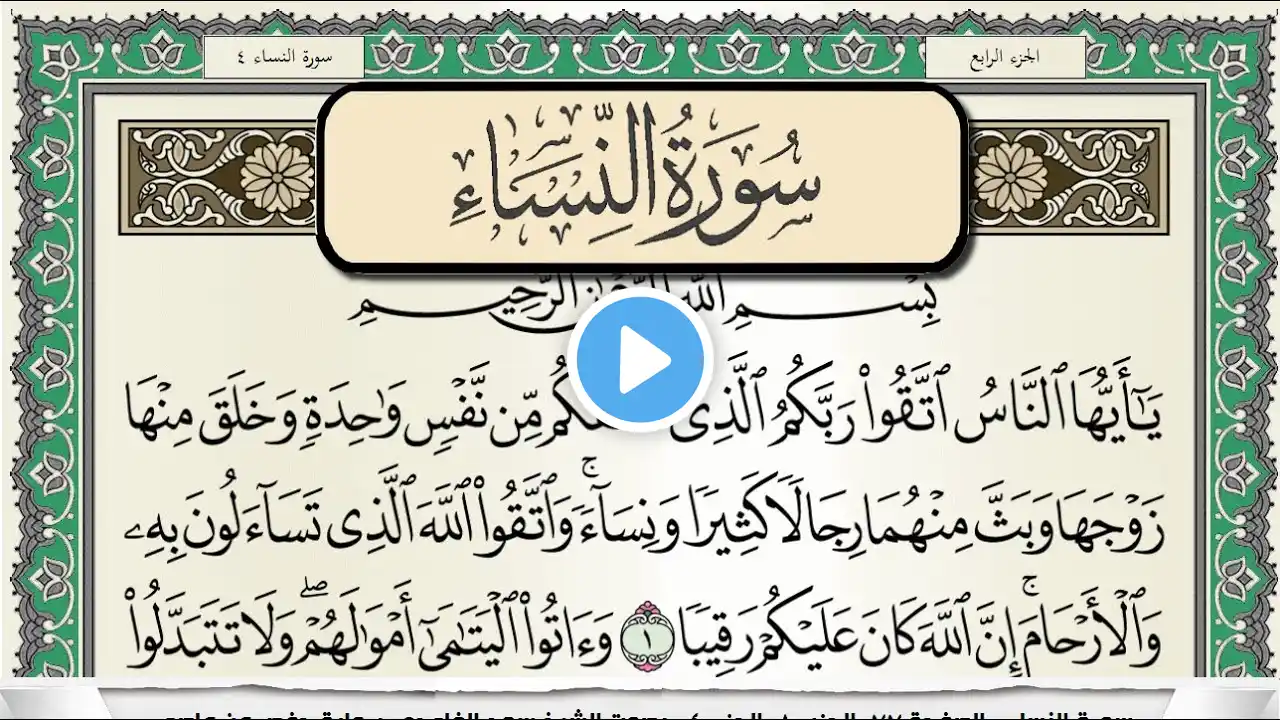 الجزء الرابع
سورة النساء ٤
سُورَةُ النِّسَاءِ
بِسْمِ اللَّهِ الرَّحْمَٰنِ الرَّحِيمِ
يَٰٓأَيُّهَا ٱلنَّاسُ ٱتَّقُوا۟ رَبَّكُمُ ٱلَّذِى مِّن نَّفْسٍ وَٰحِدَةٍ وَخَلَقَ مِنْهَا
زَوْجَهَا وَبَثَّ مِنْهُمَا رِجَالًا كَثِيرًا وَنِسَآءً ۚ وَٱتَّقُوا۟ ٱللَّهَ ٱلَّذِى تَسَآءَلُونَ بِهِۦ
وَٱلْأَرْحَامَ ۚ إِنَّ ٱللَّهَ كَانَ عَلَيْكُمْ رَقِيبًا ١ وَءَاتُوا۟ ٱلْيَتَٰمَىٰٓ أَمْوَٰلَهُمْ ۖ وَلَا تَتَبَدَّلُوا۟